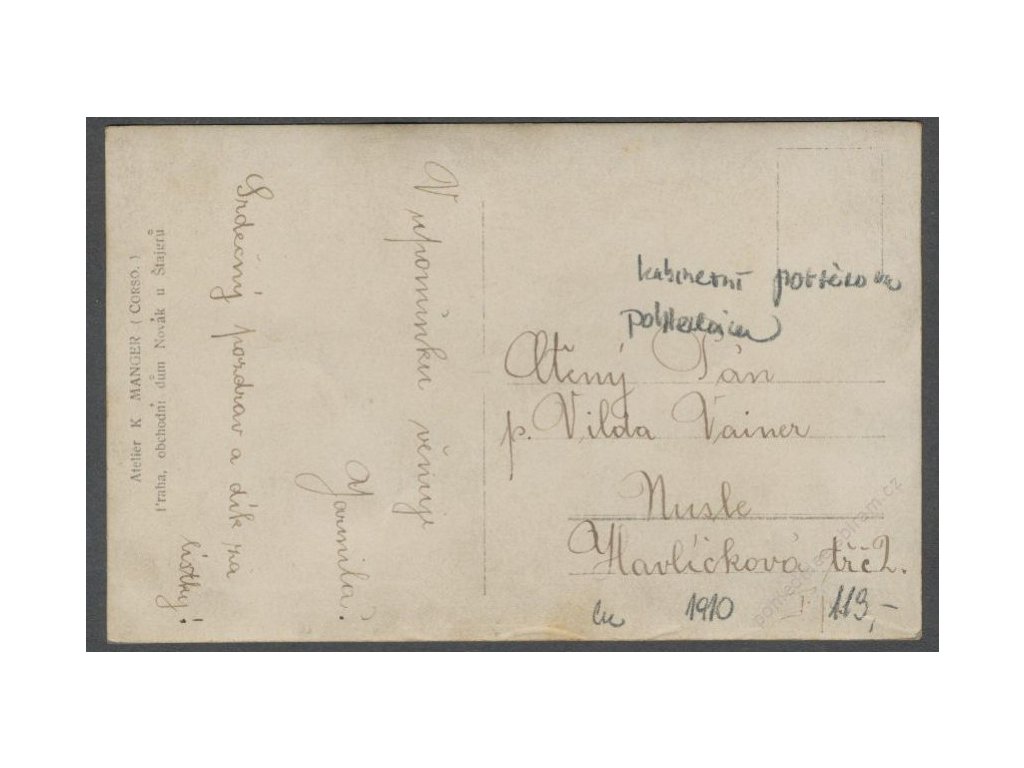 Atelier K MANGER (CORSO.)
Praha, obchodní dům Novák u Štajgrů
V upomínku věnuje
Jarmila.
Srdečný pozdrav a dík za
lístky!
kabinetní
Ctěný Pán
p. Vilda Vainer
Nusle
Havlíčková tř č 2.
1910 113,-